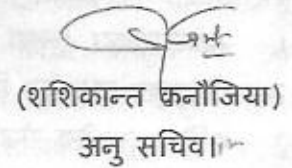 (शशिकान्त कनौजिया)
अनु सचिव।